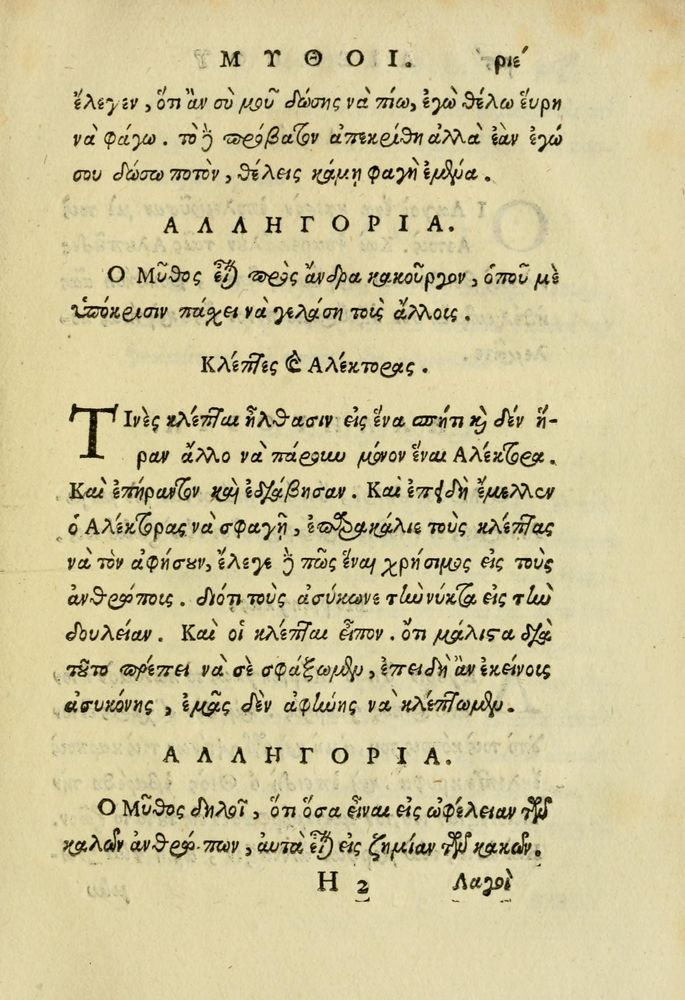 ΜΥΘΟΙ. ριέ
ἔλεγεν, ὅτι ἂν σὺ μοῦ δώσης νὰ πίω, ἐγὼ θέλω ἕυρη
νὰ φάγω. τὸ δὲ πρόβατον ἀπεκρίθη ἀλλὰ ἐὰν ἐγώ
σου δώσω ποτὸν, θέλεις κάμη φαγὴ ἐμένα.
ΑΛΛΗΓΟΡΙΑ.
Ο Μῦθος εἶ πρὸς ἄνδρα κακοῦργον, ὁποῦ μὲ
ὑπόκρισιν πάχει νὰ γελάση τοὶς ἄλλοις.
Κλέπτες καὶ Αλέκτορας.
ΤΙνὲς κλέπται ἦλθασιν εἰς ἕνα σπήτι καὶ δέν ἥ-
ραν ἄλλο νὰ πάρουν μόνον ἕναι Αλέκτορα.
Καὶ ἐπήραντον καὶ ἐδιάβησαν. Καὶ ἐπειδὴ ἔμελλεν
ὁ Αλέκτορας νὰ σφαγῆ, ἐπαρακάλιε τοὺς κλέπτας
νὰ τὸν αφήσουν, ἔλεγε δὲ πῶς ἕναι χρήσιμος εἰς τοὺς
ἀνθρώποις. διότι τοὺς ἀσύκωνε τὴν νύκτα εἰς τὴν
δουλείαν. Καὶ οἱ κλέπται εἶπον. ὅτι μάλιστα διὰ
τοῦτο πρέπει νὰ σὲ σφάξωμεν, ἐπειδὴ ἂν ἐκείνοις
ἀσυκόνης, ἐμᾶς δὲν ἀφήνης νὰ κλέπτωμεν.
ΑΛΛΗΓΟΡΙΑ.
Ο Μῦθος δηλοῖ, ὅτι ὅσα εἶναι εἰς ὠφέλειαν τῶν
καλῶν ἀνθρώπων, ἀυτὰ εἶ εἰς ζημίαν τῶν κακῶν.
Η 2 Λαγοὶ